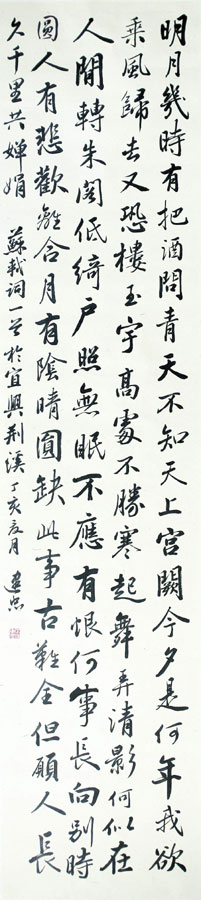 明月幾時有把酒問青天不知天上宫闕今夕是何年我欲
乘風歸去又恐樓玉宇高處不勝寒起舞弄清影何似在
人間轉朱閣低綺户照無眠不應有恨何事長向别時
圓人有悲歡離合月有陰晴圓缺此事古難全但願人長
久千里共嬋娟 蘇軾詞一首於宜興荆溪丁亥夏月